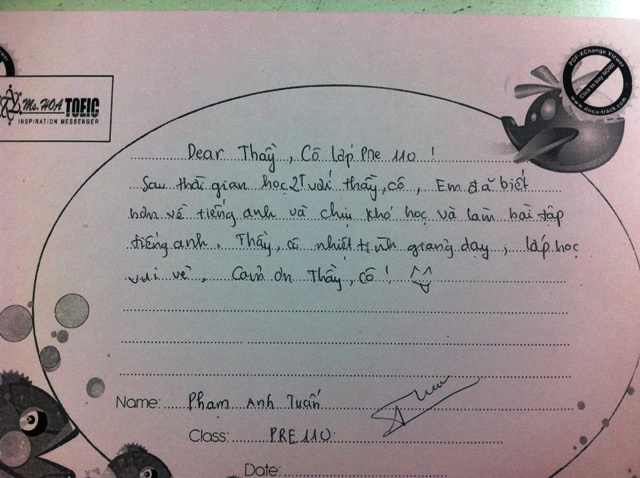 Ms. HOA TOEIC
INSPIRATION MESSENGER
PDF-XChange Viewer
Click to buy NOW!
www.docu-track.com
Dear Thầy, Cô lớp Pre 110 !
Sau thời gian học 2T với thầy, cô, Em đã biết
hơn về tiếng anh và chịu khó học và làm bài tập
tiếng anh. Thầy, cô nhiệt tình giảng dạy, lớp học
vui vẻ. Cảm ơn Thầy, cô ! ^^
Name: Phạm Anh Tuấn
Class: PRE 110
Date: